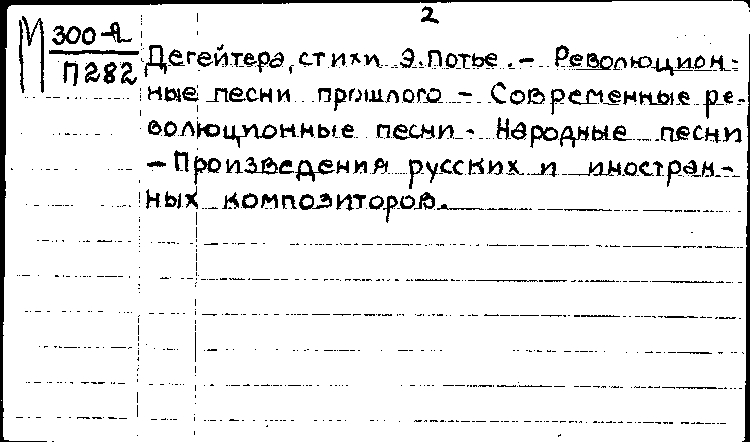 2
М 300-2
П282
Дегейтера, стихи Э. Потье. – Революцион-
ные песни прошлого – Современные ре-
волюционные песни. Народные песни
– Произведения русских и иностран-
ных композиторов.